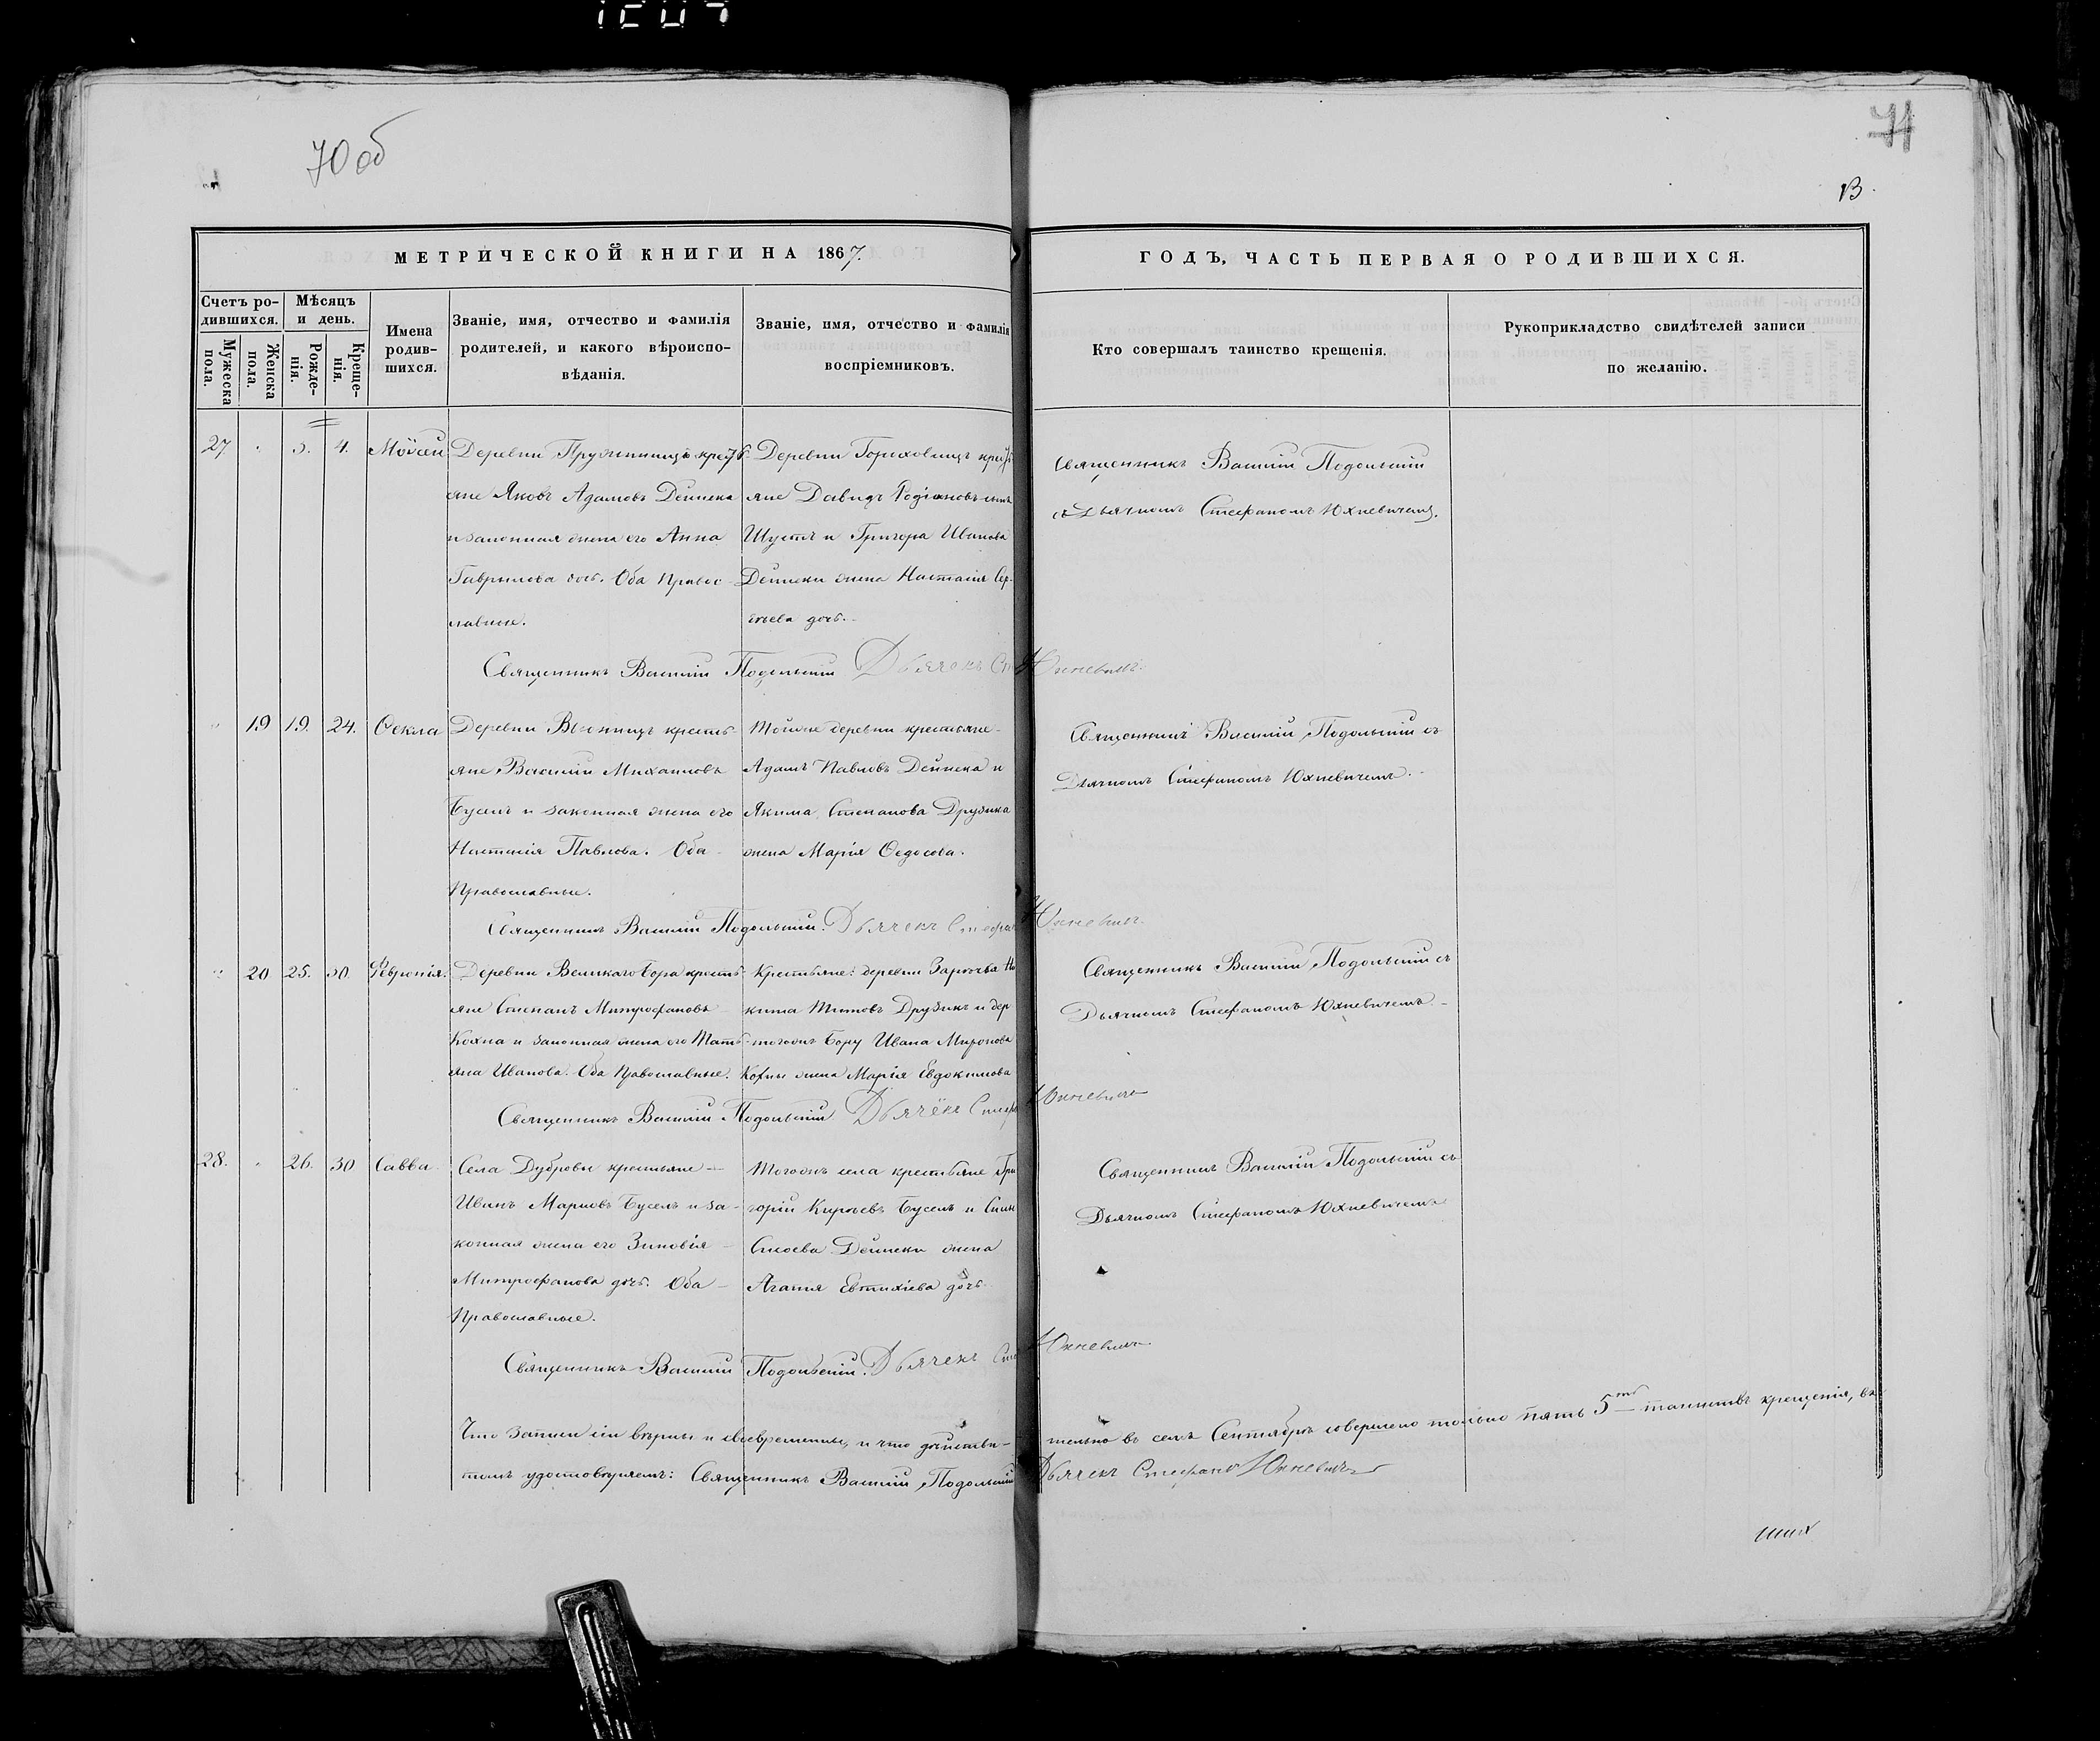 70 об
71
13.
МЕТРИЧЕСКОЙ КНИГИ НА 1867.
ГОДЪ, ЧАСТЬ ПЕРВАЯ О РОДИВШИХСЯ.
Счетъ ро-
дившихся.
Мужеска
пола.
Женска
пола.
Мѣсяцъ
и день.
Рожде-
нія.
Креще-
нія.
Имена
родив-
шихся.
Званіе, имя, отчество и фамилія
родителей, и какого вѣроиспо-
вѣданія.
Званіе, имя, отчество и фамилія
воспріемниковъ.
Кто совершалъ таинство крещенія.
Рукоприкладство свидѣтелей записи
по желанію.
27 " 3. 4. Моѵсей
Деревни Пружинищъ кресть-
яне Яковъ Адамовъ Дейнека
и законная жена его Анна
Гаврилова дочь. Оба Правос-
лавные.
Деревни Гориховищъ кресть-
яне Давидъ Родіоновъ сынъ
Шустъ и Григора Иванова
Дейнеки жена Настасія Сер-
гѣева дочь.
Священникъ Василій Подольскій
съ Дьячкомъ Стефаномъ Юхневичемъ.
Священникъ Василій Подольскій Дьячекъ Юхневичъ.
" 19 19. 24. Ѳекла
Деревни Вьюнищъ кресть-
яне Василій Михаиловъ
Буселъ и законная жена его
Настасія Павлова. Оба
Православные.
Тойже деревни крестьяне
Адамъ Павловъ Дейнека и
Якима Степанова Друзика
жена Марія Ѳедосова.
Священникъ Василій Подольскій съ
Дьячкомъ Стефаномъ Юхневичемъ.
Священникъ Василій Подольскій. Дьячекъ Стефанъ Юхневичъ.
" 20 25. 30. Февронія.
Деревни Великаго Бора кресть-
яне Степанъ Митрофановъ
Кохна и законная жена его Тать-
яна Иванова. Оба Православные.
Крестьяне: деревни Заречья Ни
кита Титовъ Друзикъ и дер
тогожъ Бору Ивана Миронова
Кохны жена Марія Евдокимова
Священникъ Василій Подольскій съ
Дьячкомъ Стефаномъ Юхневичемъ
Священникъ Василій Подольскій. Дьячекъ Стефанъ Юхневичъ
28. " 26. 30 Савва.
Села Дубровы крестьяне
Иванъ Марковъ Буселъ и за-
конная жена его Зиновія
Митрофанова дочь. Оба
Православные.
Тогожъ села крестьяне Гри
горій Кирѣевъ Буселъ и
Дейнеки жена
Агапія Евтихіева дочь
Священникъ Василій Подольскій съ
Дьячкомъ Стефаномъ Юхневичемъ
Священникъ Василій Подольскій. Дьячекъ Юхневичъ
Что записи сіи вѣрны и своевременны, и что дѣйстви-
тельно въ семъ Сентябрѣ совершено только пять 5ть таинствъ крещенія, въ
томъ удостовѣряемъ: Священникъ Василій Подольскій
Дьячекъ Стефанъ Юхневичъ